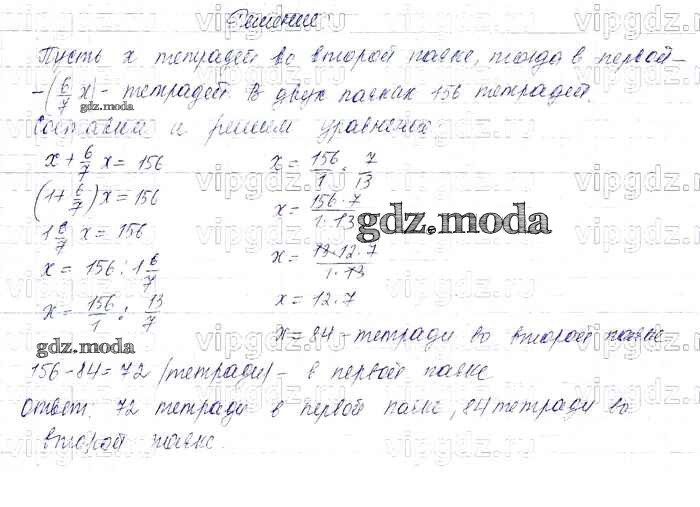 Решение.
Пусть x тетрадей во второй пачке, тогда в первой -
- (6/7 x) - тетрадей. В двух пачках 156 тетрадей.
gdz.moda
Составим и решим уравнение
x + 6/7 x = 156
(1 + 6/7) x = 156
1 6/7 x = 156
x = 156 : 1 6/7
x = 156/1 : 13/7
x = 156/1 · 7/13
x = 156·7/1·13
gdz.moda
x = 13·12·7/1·13
x = 12·7
x = 84 - тетради во второй пачке
gdz.moda
156 - 84 = 72 (тетради) - в первой пачке
Ответ: 72 тетради в первой пачке, 84 тетради во
второй пачке.
vipgdz.ru